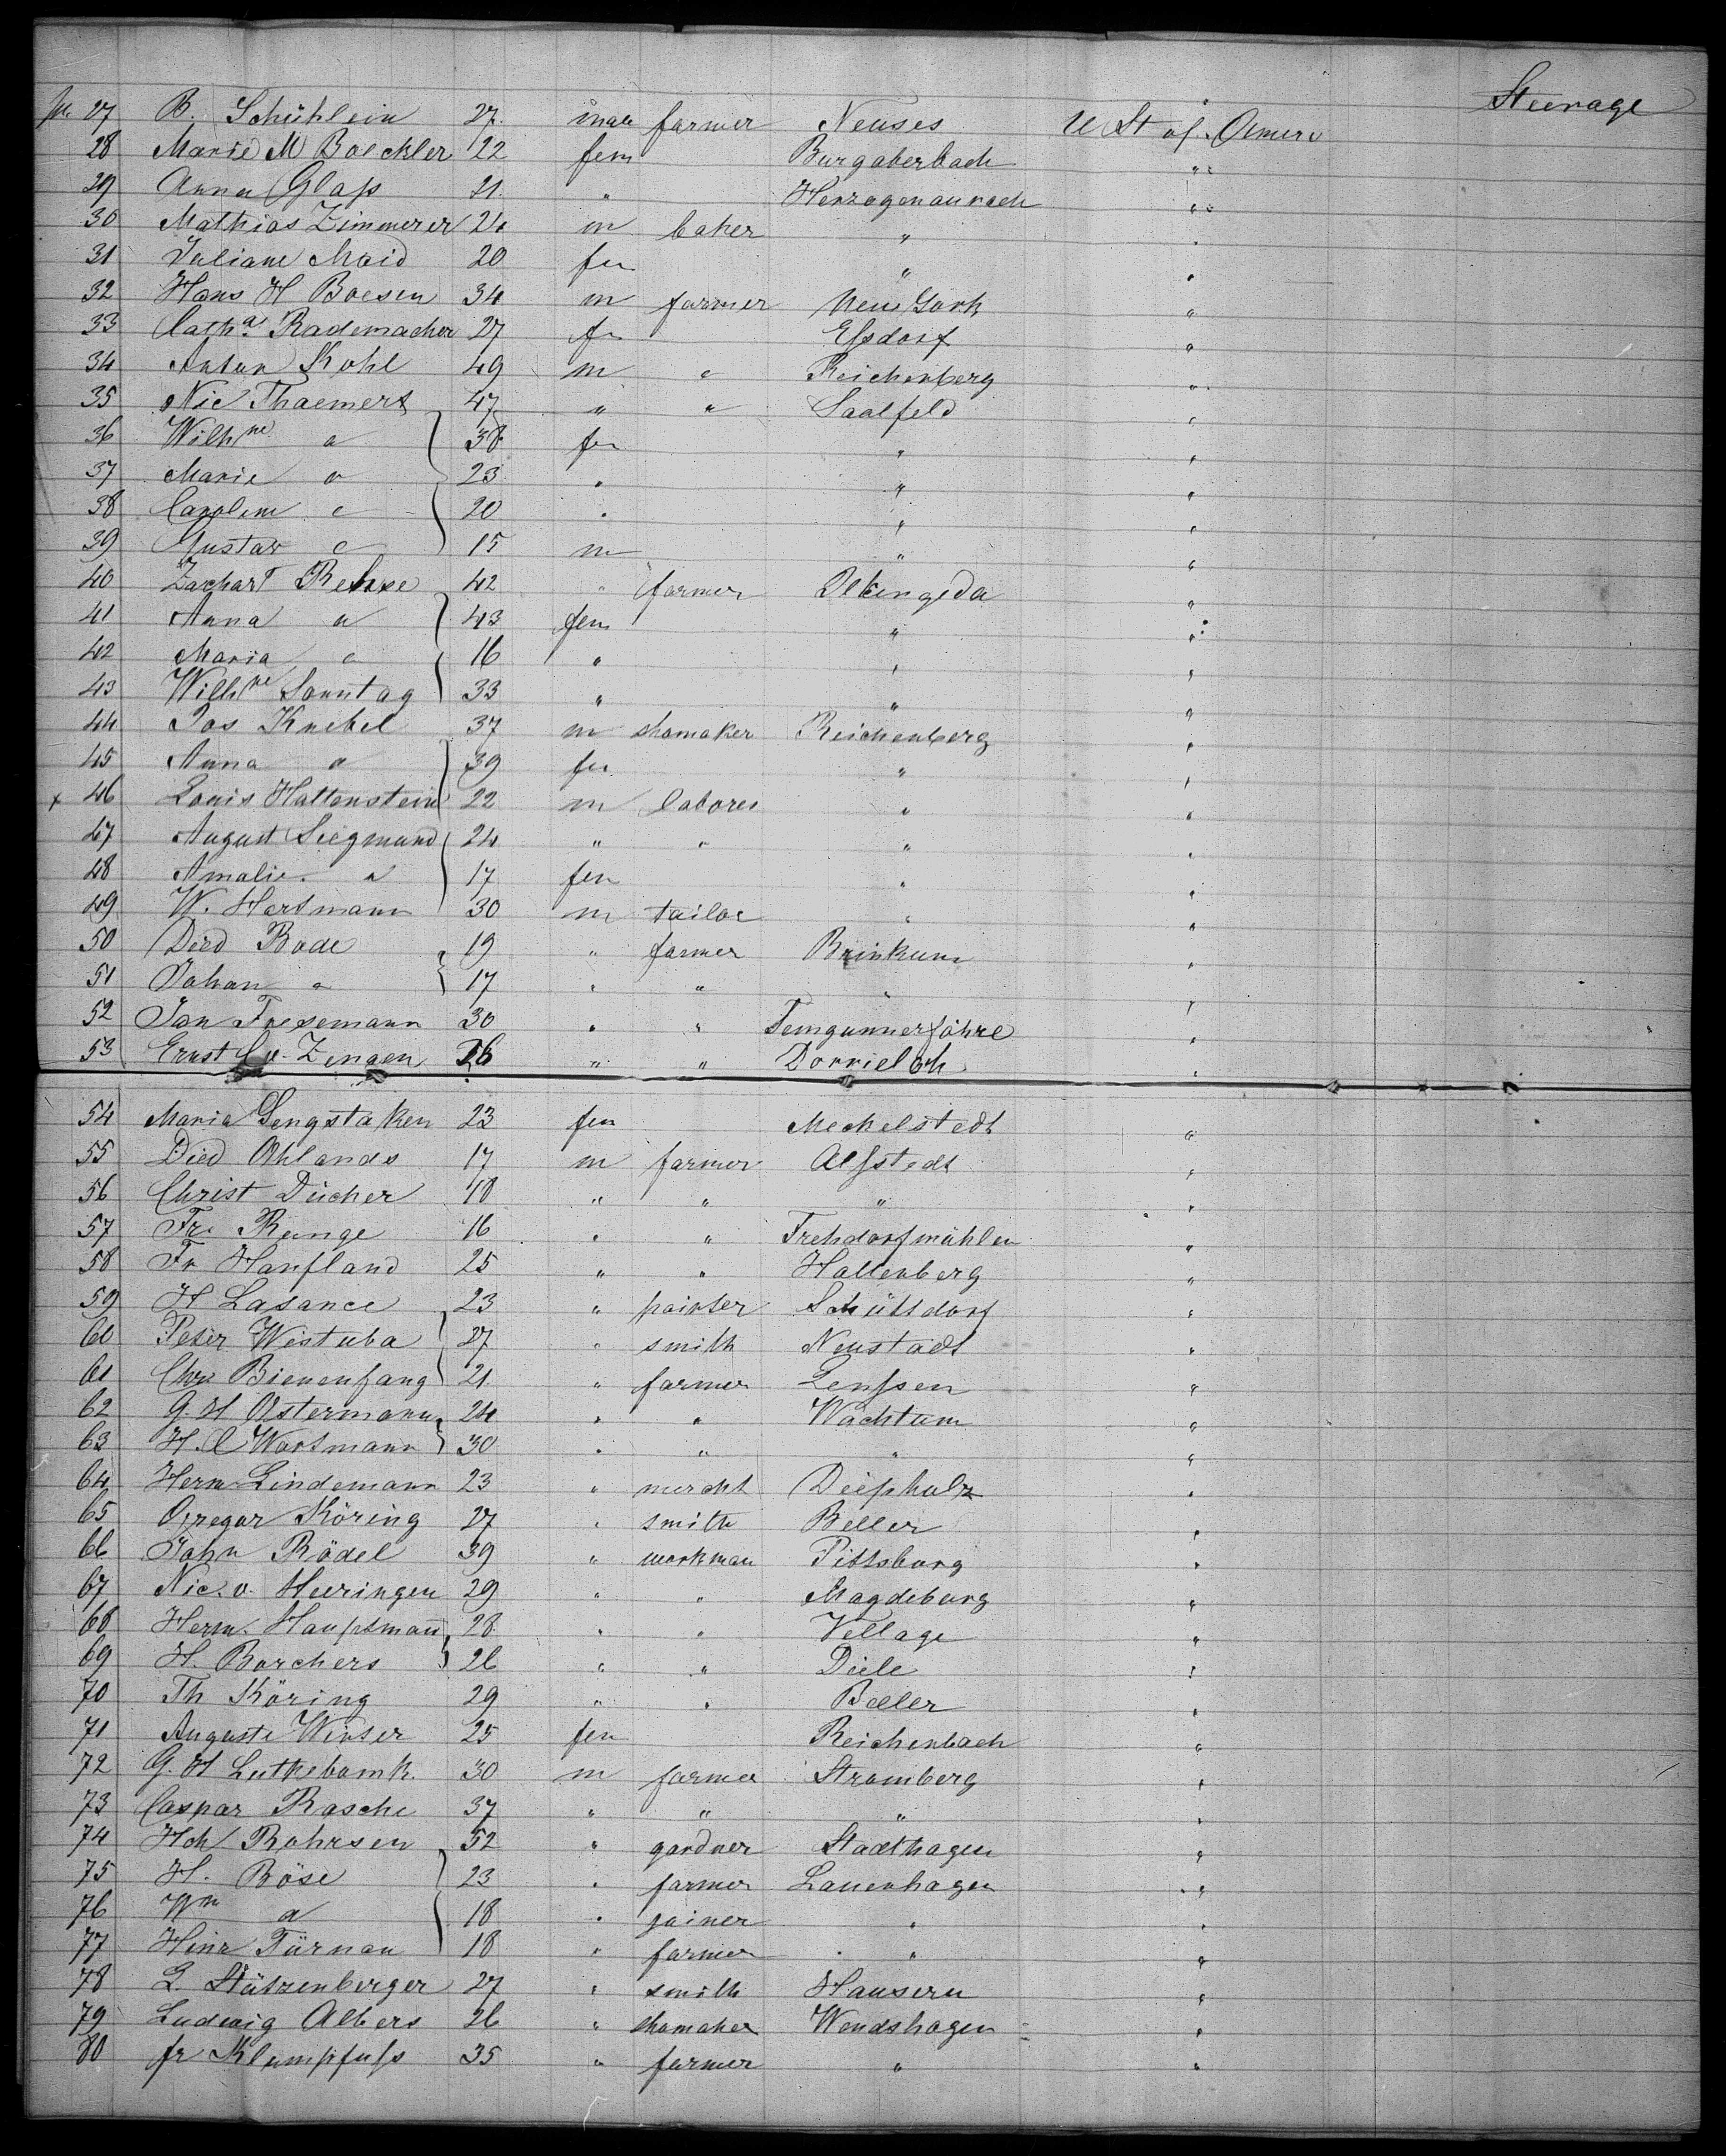 Steerage
27 B. Schühlein 27 male farmer Neuses U St of Americ
28 Marie M Boeckler 22 fem Burgaberbach "
29 Anna Glaß 21 " Herzogenaurach "
30 Mathias Zimmerer 24 m baker " "
31 Juliane Maid 20 fem " "
32 Hans H Boesen 34 m farmer New York "
33 Cath.a Rademacher 27 fem Eßdorf "
34 Anton Kohl 49 m " Reichenberg "
35 Nic Thaemert 47 " " Saalfeld "
36 Wilhne " 38 fem " "
37 Marie " 23 " " "
38 Carolem " 20 " " "
39 Gustav " 15 m " "
40 Zachar 42 " farmer "
41 Anna " 43 fem " "
42 Maria " 16 " " "
43 Wilhne Sonntag 33 " " "
44 Jos Knebel 37 m shomaker Reichenberg "
45 Anna " 39 fem " "
x 46 Louis Hattenstein 22 m laborer " "
47 August Siegmund 24 " " " "
48 Amalie " 17 fem " "
49 W. Hartmann 30 m tailor " "
50 Died Bode 19 " farmer Brinkum "
51 Johan " 17 " " " "
52 Jan Fresemann 30 " " "
53 Ernst 26 " " Dorrieloh "
54 Maria Sengstaken 23 fem Meckelstedt "
55 Died Ohlands 17 m farmer Alfstedt "
56 Christ Dücher 18 " " " "
57 Fr. Runge 16 " " Frehdorfmühlen "
58 Fr Hanfland 25 " " Hallenberg "
59 H Lasance 23 " painter Schüttdorf "
60 Peter Wistuba 27 " smith Neustadt "
61 Chr Bienenfang 21 " farmer Lenßen "
62 G. H Ostermann 24 " " Wachtum "
63 H. Wortmann 30 " " " "
64 Herm Lindemann 23 " mercht Diepholz "
65 Gregor Köring 27 " smith Beller "
66 John Rödel 39 " workman Pittsburg "
67 Nic. v. Heeringen 29 " " Magdeburg "
68 Herm. Hauptmann 28 " " Vellage "
69 H. Borchers 26 " " Diele "
70 Th Köring 29 " " Beller "
71 Auguste Winter 25 fem Reichenbach "
72 G. H Lutkebomk. 30 m farmer Stromberg "
73 Caspar Rasche 37 " " " "
74 Hch Rohrsen 52 " gardner Stadthagen "
75 H. Böse 23 " farmer Lauenhagen "
76 Wm " 18 " joiner " "
77 Heinr Türnau 18 " farmer " "
78 L. Stützenberger 27 " smith Hausern "
79 Ludwig Albers 26 " shomaker Wendshagen "
80 fr Klumpfuß 35 " farmer " "